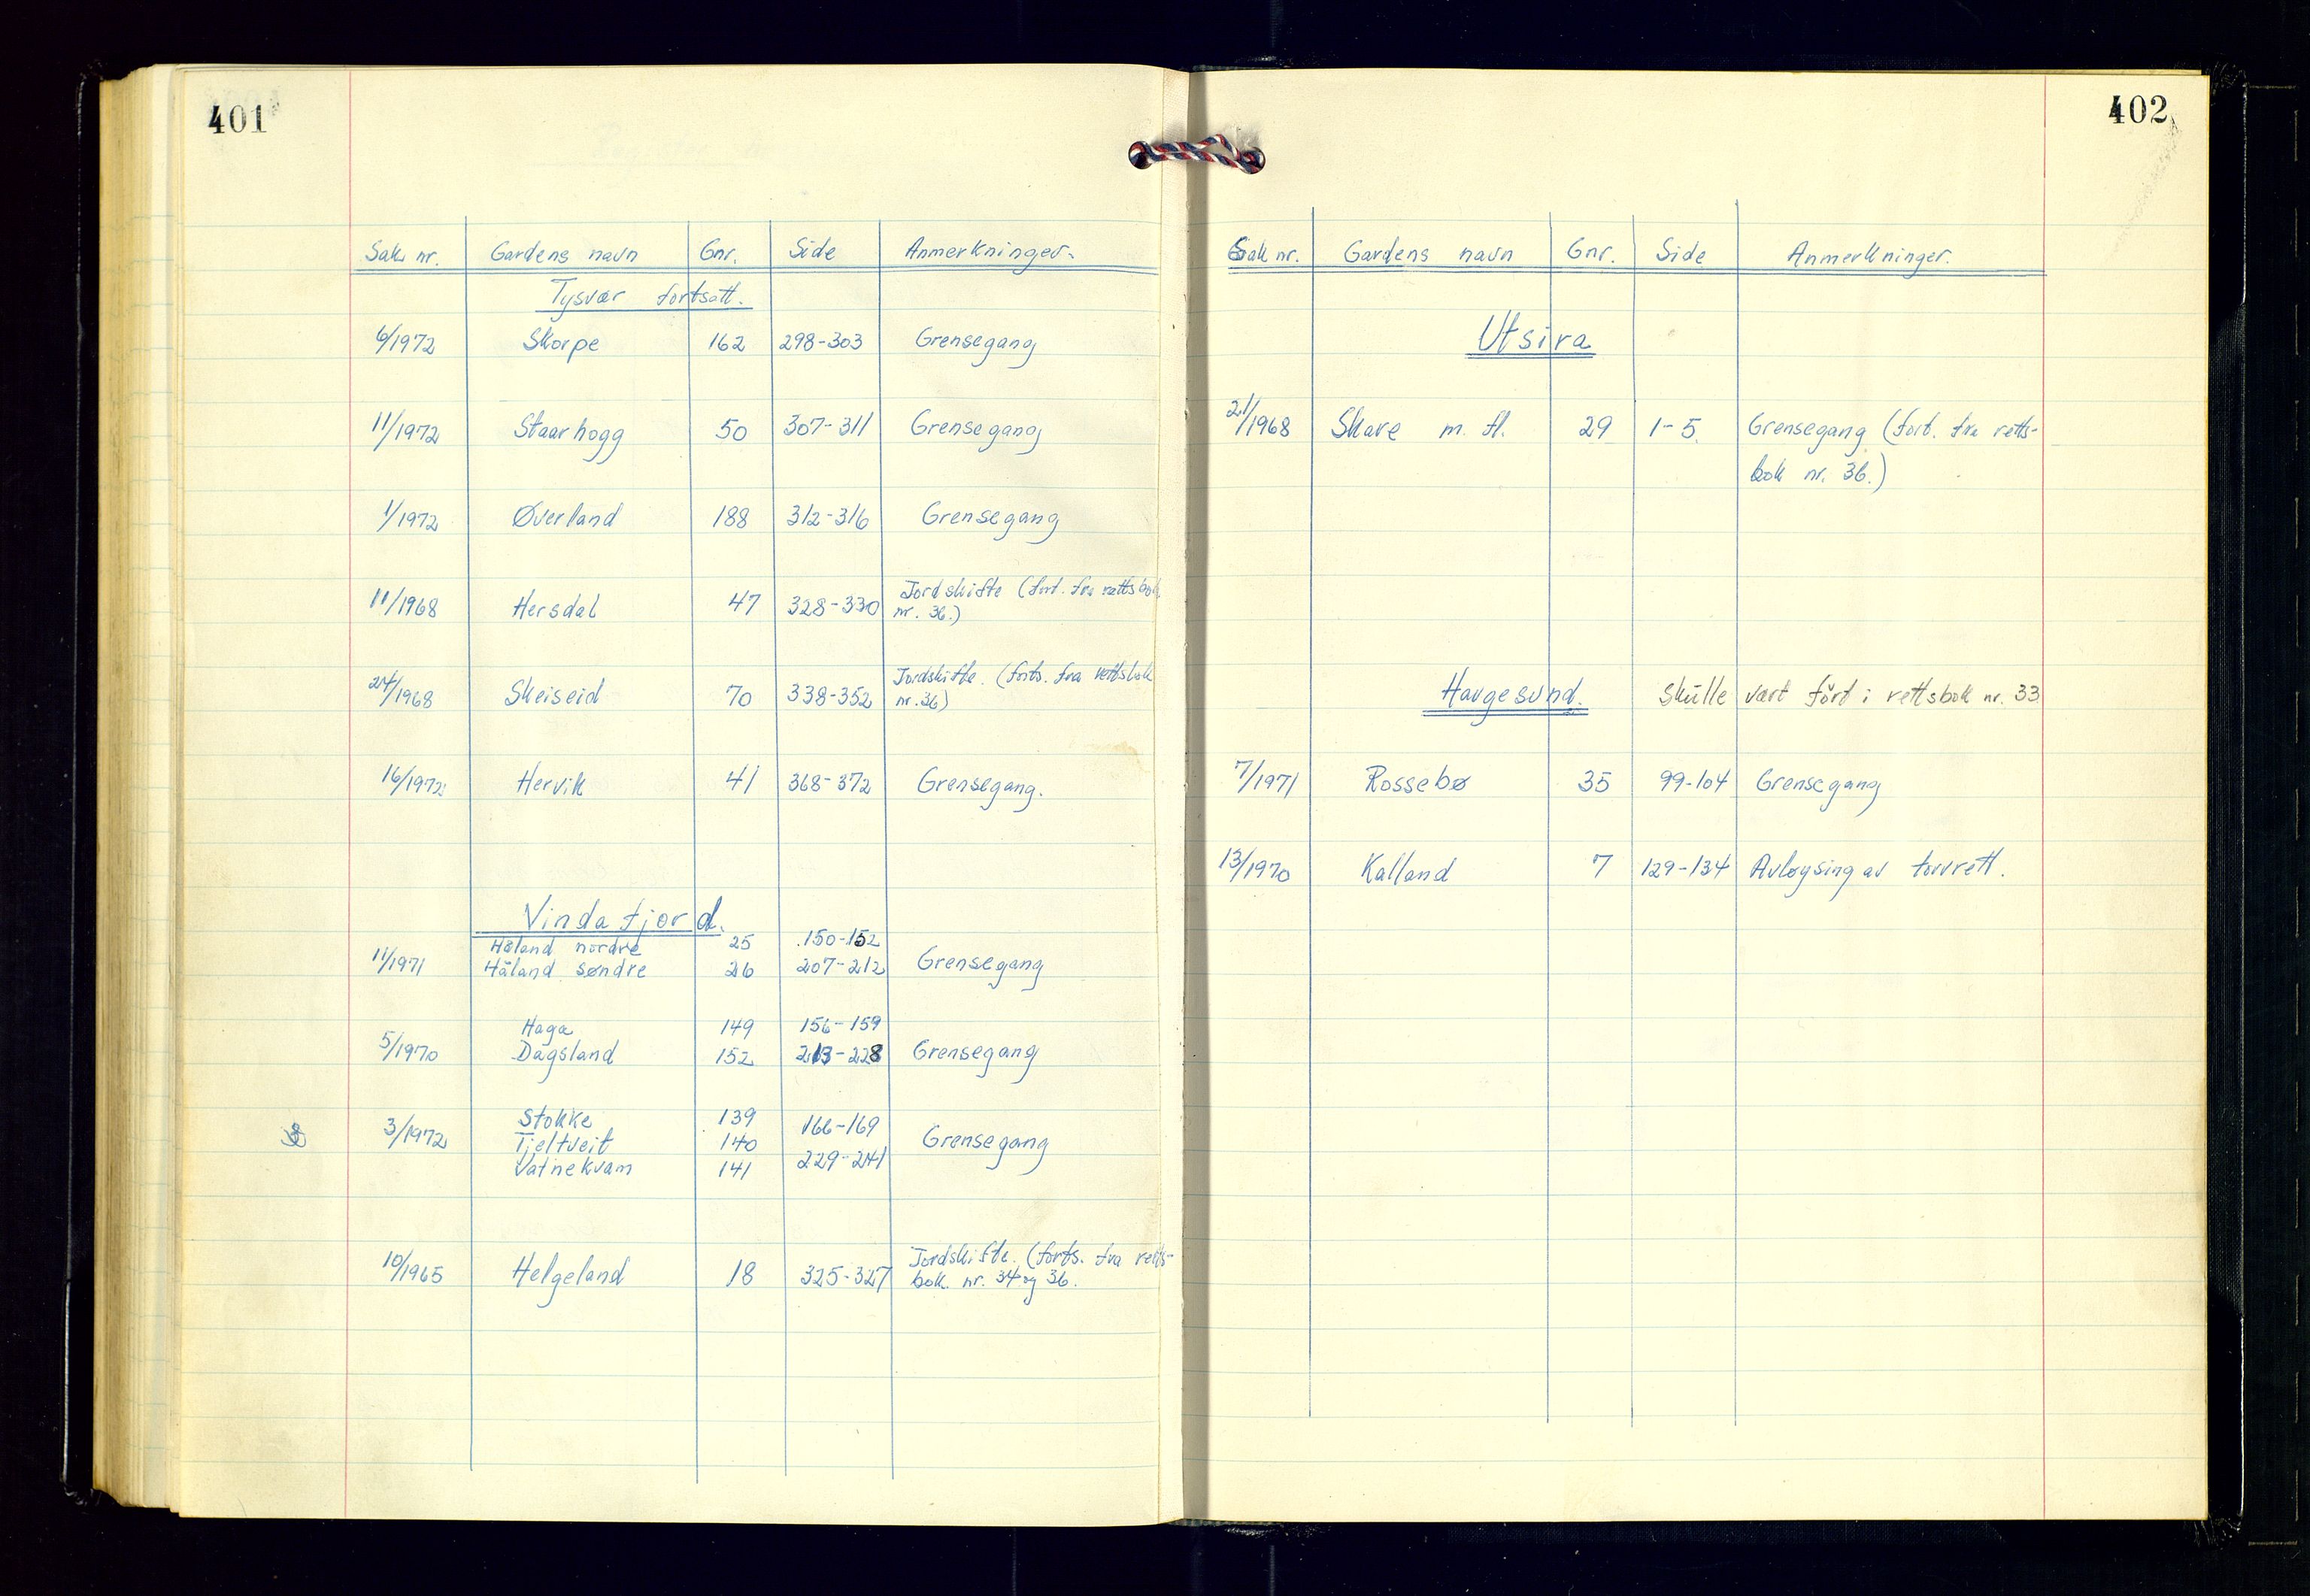 401
Sak nr. Gardens navn Gnr. Side Anmerkninger.
Tysvær fortsatt.
6/1972 Skorpe 162 298-303 Grensegang
11/1972 Staarhogg 50 307-311 Grensegang
1/1972 Øverland 188 312-316 Grensegang
11/1968 Hersdal 47 328-330 Jordskifte (fort. fra rettsbok
nr. 36.)
24/1968 Skeiseid 70 338-352 Jordskifte. (forts. fra rettsbok
nr. 36)
16/1972 Hervik 41 368-372 Grensegang.
Vindafjord.
Håland nordre 25 150-152
11/1971 Håland søndre 26 207-212 Grensegang
Haga 149 156-159
5/1970 Dagsland 152 213-228 Grensegang
Stokke 139 166-169
3/1972 Tjeltveit 140 Grensegang
Vatnekvam 141 229-241
10/1965 Helgeland 18 325-327 Jordskifte. (forts. fra retts-
bok. nr. 34 og 36.
402
Sak nr. Gardens navn Gnr. Side Anmerkninger.
Utsira
21/1968 Skare m. fl. 29 1-5. Grensegang (fort. fra retts-
bok nr. 36.)
Haugesund. Skulle vært ført i rettsbok nr. 33
7/1971 Rossebø 35 99-104 Grensegang
13/1970 Kalland 7 129-134 Avløysing av torvrett.